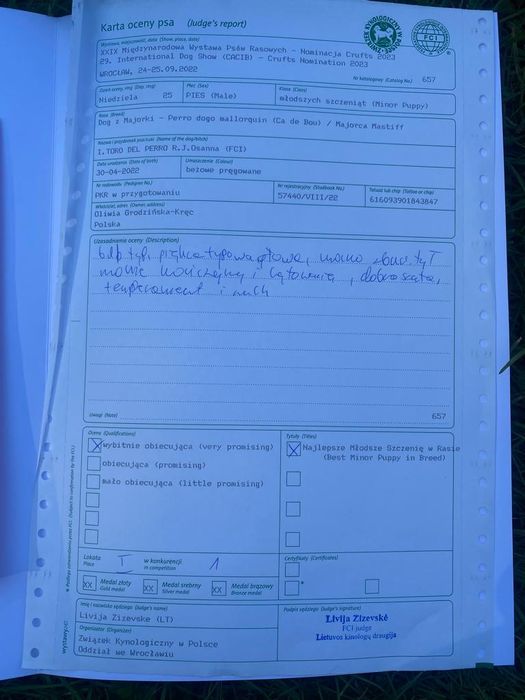 Karta oceny psa (Judge's report)
ZWIĄZEK KYNOLOGICZNY W POLSCE
FCI
Wystawa, miejscowość, data (Show, place, date)
XXIX Międzynarodowa Wystawa Psów Rasowych - Nominacja Crufts 2023
29. International Dog Show (CACIB) - Crufts Nomination 2023
WROCŁAW, 24-25.09.2022
Nr katalogowy (Catalog No.) 657
Dzień oceny, ring (Day, ring)
Płeć (Sex)
Klasa (Class)
Niedziela 25
PIES (Male)
młodszych szczeniąt (Minor Puppy)
Rasa (Breed)
Dog z Majorki - Perro dogo mallorquin (Ca de Bou) / Majorca Mastiff
Nazwa i przydomek psa/suki (Name of the dog/bitch)
I.TORO DEL PERRO R.J.Osanna (FCI)
Data urodzenia (Date of birth)
Umaszczenie (Colour)
30-04-2022
beżowe pręgowane
Nr rodowodu (Pedigree No.)
Nr rejestracyjny (Studbook No.)
Tatuaż lub chip (Tattoo or chip)
PKR w przygotowaniu
57440/VIII/22
616093901843847
Właściciel, adres (Owner, address)
Oliwia Grodzińska-Kręc
Polska
Uzasadnienie oceny (Description)
bdb typ, piękna typowa głowa, mocno zbud. tył
mocne kończyny i kątowania, dobra szata,
temperament i ruch
Uwagi (Note)
657
Ocena (Qualifications)
Tytuły (Titles)
wybitnie obiecująca (very promising)
Najlepsze Młodsze Szczenię w Rasie
(Best Minor Puppy in Breed)
obiecująca (promising)
mało obiecująca (little promising)
Lokata
Place
I
w konkurencji
in competition
1
Certyfikaty (Certificates)
XX Medal złoty
Gold medal
XX Medal srebrny
Silver medal
XX Medal brązowy
Bronze medal
*
* Podlega zatwierdzeniu przez FCI (Subject to confirmation by the FCI)
Imię i nazwisko sędziego (Judge's name)
Livija Zizevske (LT)
Podpis sędziego (Judge's signature)
Livija Zizevskė
FCI judge
Lietuvos kinologų draugija
Organizator (Organizer)
Związek Kynologiczny w Polsce
Oddział we Wrocławiu